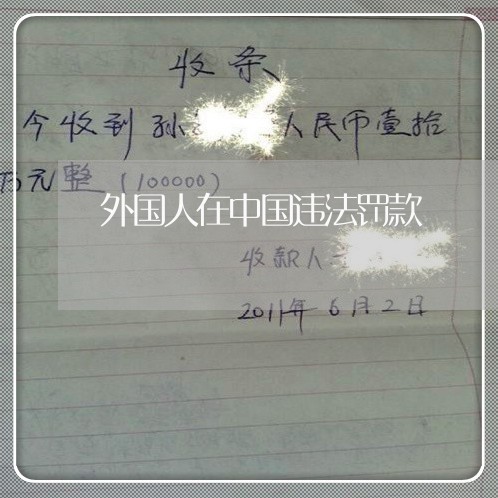 收条
今收到孙 人民币壹拾
万元整（100000）
外国人在中国违法罚款
收款人
2011年6月2日